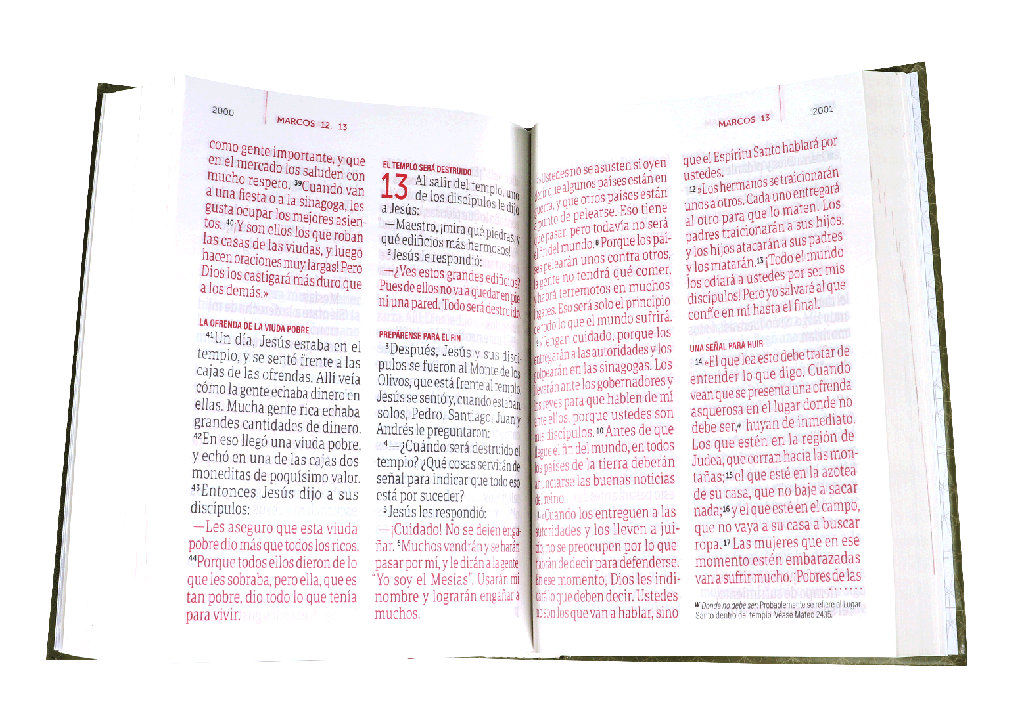 2000
MARCOS 12, 13
como gente importante, y que
en el mercado los saluden con
mucho respeto. 39Cuando van
a una fiesta o a la sinagoga, les
gusta ocupar los mejores asien-
tos. 40¡Y son ellos los que roban
las casas de las viudas, y luego
hacen oraciones muy largas! Pero
Dios los castigará más duro que
a los demás.»
LA OFRENDA DE LA VIUDA POBRE
41Un día, Jesús estaba en el
templo, y se sentó frente a las
cajas de las ofrendas. Allí veía
cómo la gente echaba dinero en
ellas. Mucha gente rica echaba
grandes cantidades de dinero.
42En eso llegó una viuda pobre,
y echó en una de las cajas dos
moneditas de poquísimo valor.
43Entonces Jesús dijo a sus
discípulos:
—Les aseguro que esta viuda
pobre dio más que todos los ricos.
44Porque todos ellos dieron de lo
que les sobraba, pero ella, que es
tan pobre, dio todo lo que tenía
para vivir.
EL TEMPLO SERÁ DESTRUIDO
13 Al salir del templo, uno
de los discípulos le dijo
a Jesús:
—Maestro, ¡mira qué piedras, y
qué edificios más hermosos!
2Jesús le respondió:
—¿Ves estos grandes edificios?
Pues de ellos no va a quedar en pie
ni una pared. Todo será destruido.
PREPÁRENSE PARA EL FIN
3Después, Jesús y sus discí-
pulos se fueron al Monte de los
Olivos, que está frente al templo.
Jesús se sentó y, cuando estaban
solos, Pedro, Santiago, Juan y
Andrés le preguntaron:
4—¿Cuándo será destruido el
templo? ¿Qué cosas servirán de
señal para indicar que todo eso
está por suceder?
5Jesús les respondió:
—¡Cuidado! No se dejen enga-
ñar. 6Muchos vendrán y se harán
pasar por mí, y le dirán a la gente
"Yo soy el Mesías". Usarán mi
nombre y lograrán engañar a
muchos.
MARCOS 13
2001
»Ustedes no se asusten si oyen
decir que algunos países están en
guerra, y que otros países están
a punto de pelearse. Eso tiene
que pasar, pero todavía no será
el fin del mundo. 8Porque los paí-
ses pelearán unos contra otros,
la gente no tendrá qué comer,
y habrá terremotos en muchos
lugares. Eso será solo el principio
de todo lo que el mundo sufrirá.
»Tengan cuidado, porque los
entregarán a las autoridades y los
golpearán en las sinagogas. Los
llevarán ante los gobernadores y
los reyes para que hablen de mí
ante ellos, porque ustedes son
mis discípulos. 10Antes de que
llegue el fin del mundo, en todos
los países de la tierra deberán
anunciarse las buenas noticias
del reino.
»Cuando los entreguen a las
autoridades y los lleven a jui-
cio, no se preocupen por lo que
habrán de decir para defenderse.
En ese momento, Dios les indi-
cará lo que deben decir. Ustedes
no son los que van a hablar, sino
que el Espíritu Santo hablará por
ustedes.
12»Los hermanos se traicionarán
unos a otros. Cada uno entregará
al otro para que lo maten. Los
padres traicionarán a sus hijos,
y los hijos atacarán a sus padres
y los matarán. 13¡Todo el mundo
los odiará a ustedes por ser mis
discípulos! Pero yo salvaré al que
confíe en mí hasta el final.
UNA SEÑAL PARA HUIR
14»El que lea esto debe tratar de
entender lo que digo. Cuando
vean que se presenta una ofrenda
asquerosa en el lugar donde no
debe ser, huyan de inmediato.
Los que estén en la región de
Judea, que corran hacia las mon-
tañas; 15el que esté en la azotea
de su casa, que no baje a sacar
nada; 16y el que esté en el campo,
que no vaya a su casa a buscar
ropa. 17Las mujeres que en ese
momento estén embarazadas
van a sufrir mucho. ¡Pobres de las
Donde no debe ser: Probablemente se refiere al Lugar
Santo dentro del templo. Véase Mateo 24.15.